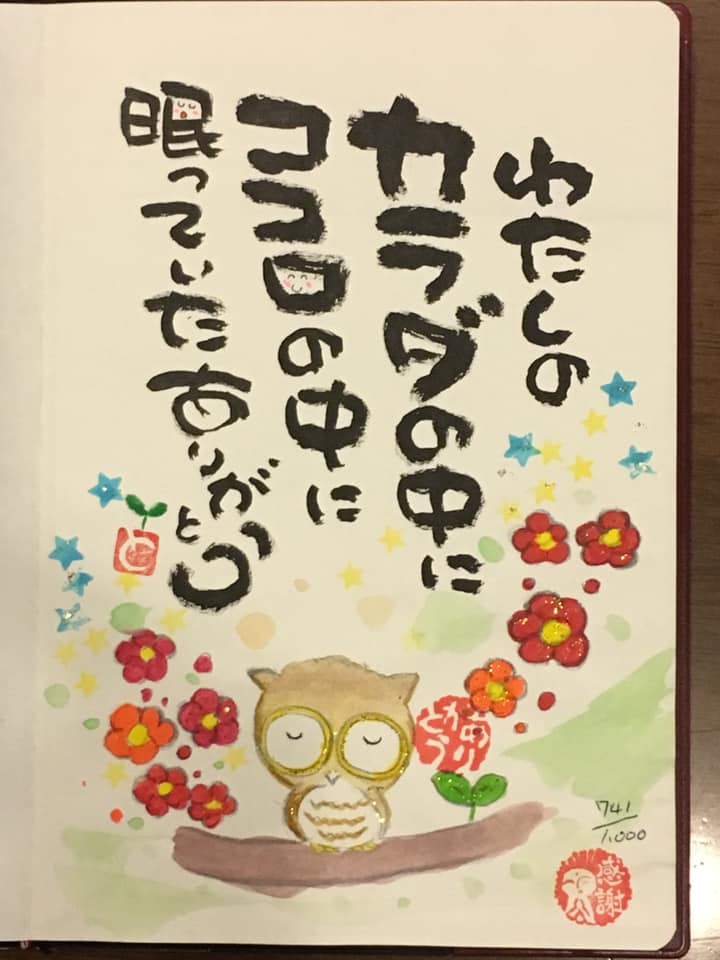 わたしの
カラダの中に
ココロの中に
眠っていたありがとう
ありがとう
741/1,000
感謝